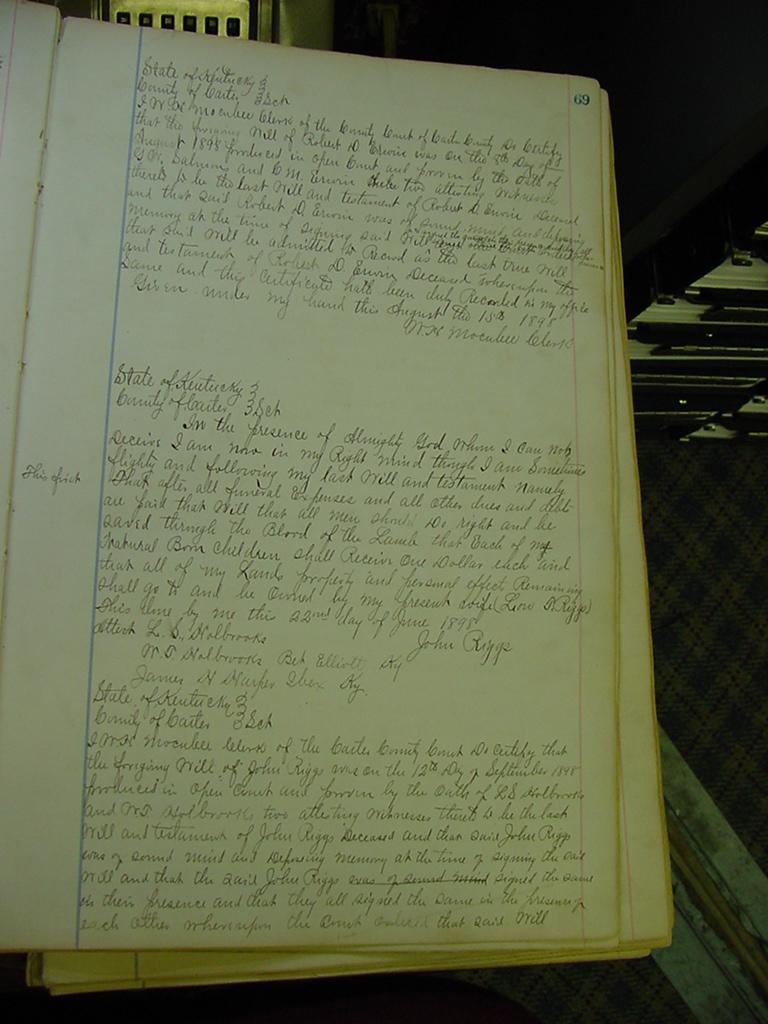 69
State of Kentucky }
County of Carter } Sct
I W H Mocabee Clerk of the County Court of Carter County Do Certify
that the forgoing Will of Robert D. Erwin was on the 8th Day of
August 1898 produced in open Court and proven by the oath of
G W. Salmons and C. M. Erwin two attesting Witnesses
thereto to be the last Will and testament of Robert D. Erwin Deceased
and that said Robert D. Erwin was of sound mind and disposing
memory at the time of signing said Will
that said Will be admitted to Record as the last true Will
and testament of Robert D. Erwin Deceased whereupon the
same and this Certificate hath been duly Recorded in my office
Given under my hand this August the 15th 1898
W.H Mocabee Clerk
State of Kentucky }
County of Carter } Sct
In the presence of Almighty God whom I can not
Deceive I am now in my Right mind though I am Sometimes
flighty and following my last Will and testament Namely
This first
That after all funeral Expenses and all other dues and debts
are paid that Will that all men should Do right and be
saved through the Blood of the Lamb that Each of my
Natural Born Children shall Receive One Dollar each and
that all of my Lands property and personal effect Remaining
shall go to and be owned by my present wife ( Riggs)
This done by me this 22nd day of June 1898
Attest L. S. Holbrooks
John Riggs
W. T. Holbrooks Bet Elliott Ky
James H Harper Ibex Ky.
State of Kentucky }
County of Carter } Sct
I W H Mocabee Clerk of the Carter County Court Do Certify that
the forgoing Will of John Riggs was on the 12th Day of September 1898
produced in open Court and proven by the oath of L S Holbrooks
and W T Holbrooks two attesting witnesses thereto to be the last
Will and testament of John Riggs Deceased and that said John Riggs
was of sound mind and Deposing memory at the time of signing the said
Will and that the said John Riggs was of sound mind signed the same
in their presence and that they all signed the same in the presence of
each other whereupon the Court ordered that said Will